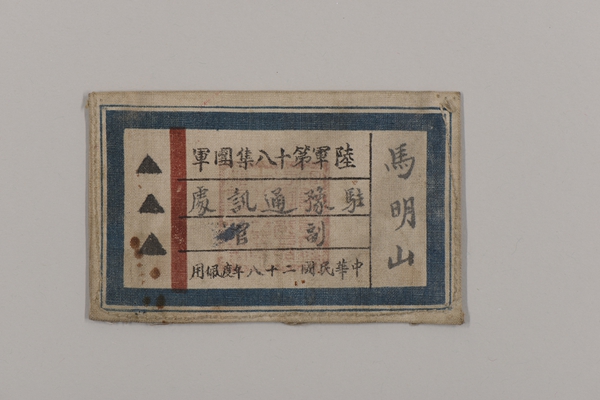 馬明山
陸軍第十八集團軍
駐豫通訊處
副官
中華民國二十八年度佩用